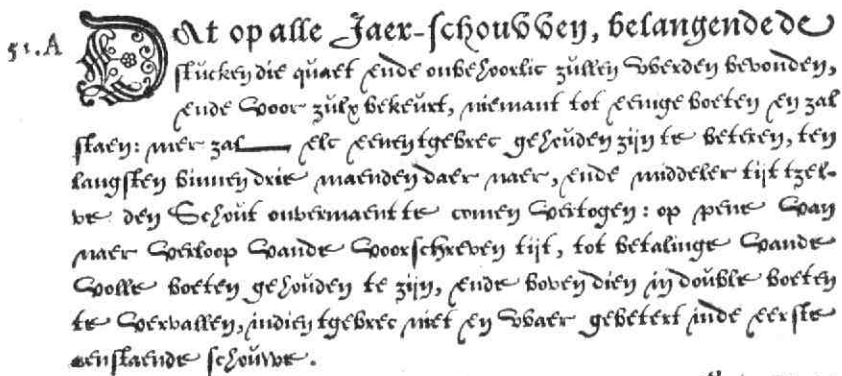 51.A DAt op alle Jaer-schouvven, belangende de
stucken die quaet ende onbehoorlic zullen vverden bevonden,
ende voor zulx bekeurt, niemant tot eenige boeten en zal
staen: mer zal elc eenen tgebrec gehouden zijn te beteren, ten
langsten binnen drie maenden daer naer, ende middeler tijt tzel-
ve den Schout onvermaent te comen vertogen: op pene van
naer verloop vande voorschreven tijt, tot betalinge vande
volle boeten gehouden te zijn, ende boven dien in double boeten
te vervallen, indien tgebrec niet en vvaer gebetert inde eerste
aenstaende schouwe.